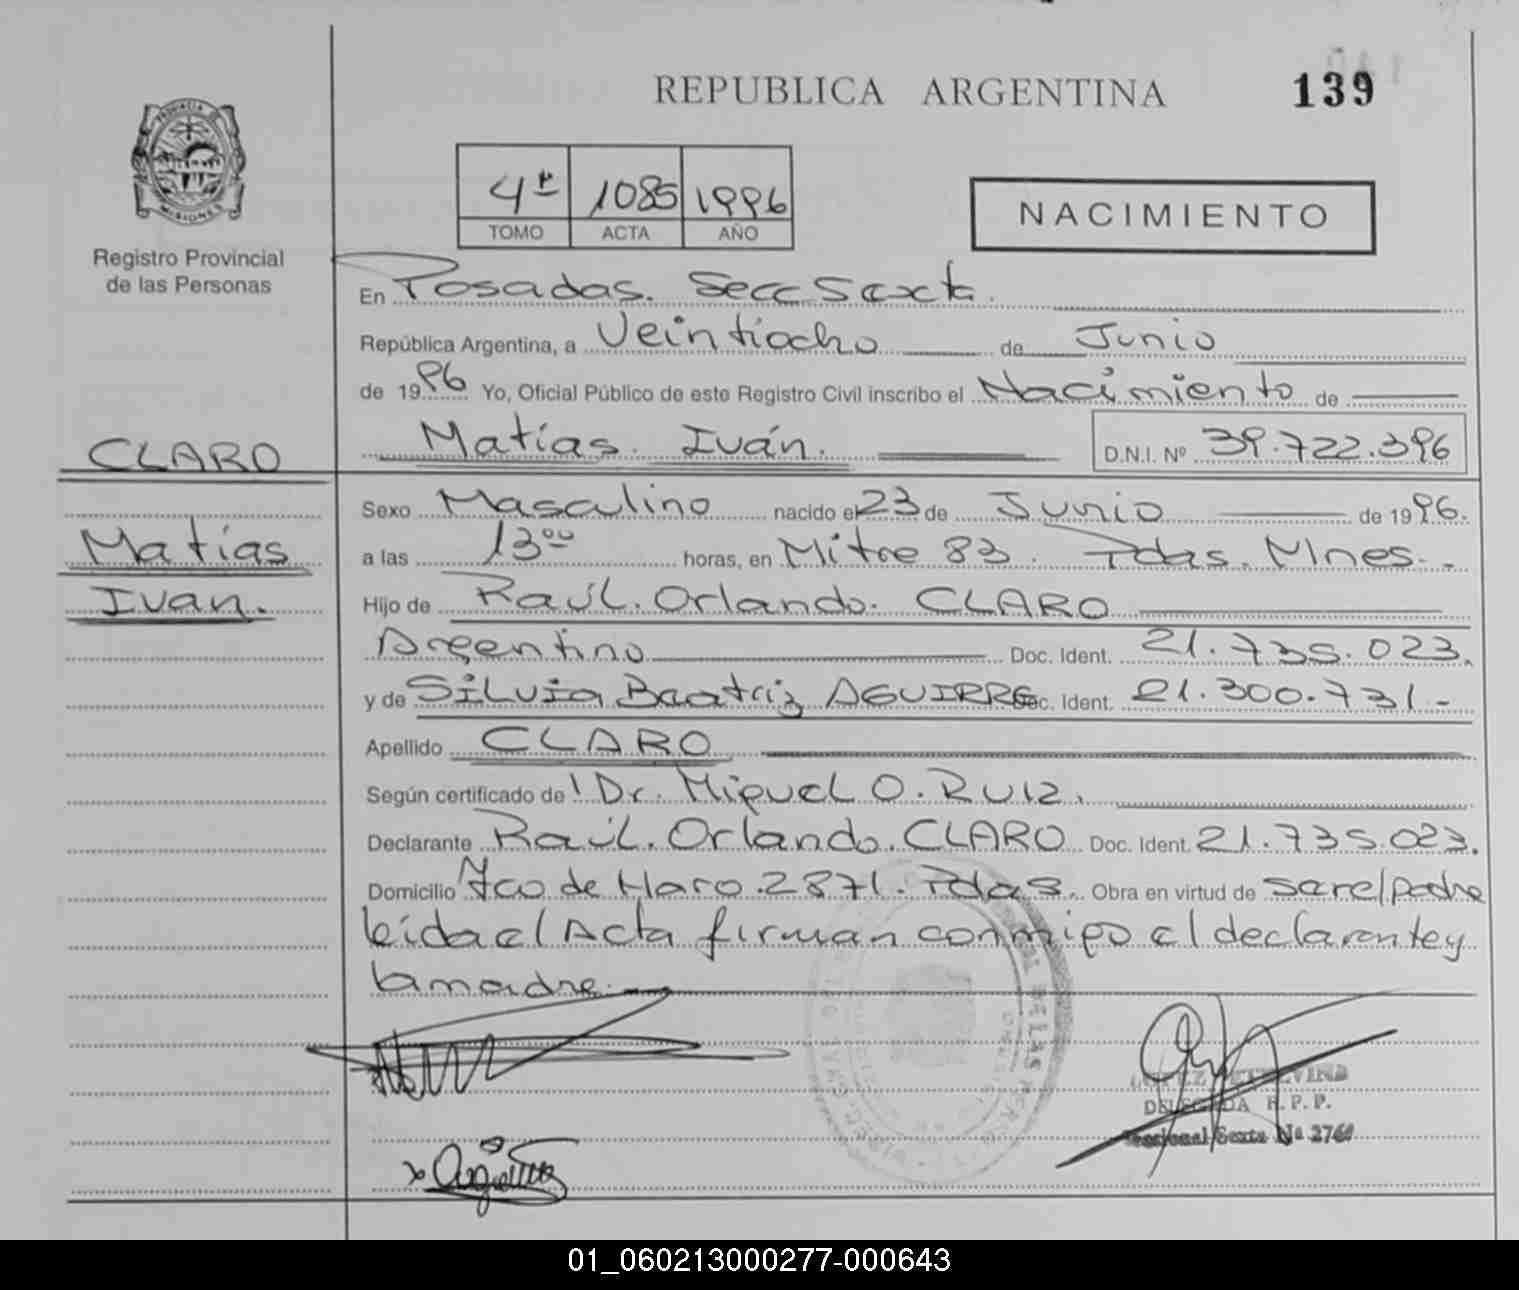 REPUBLICA ARGENTINA
139
Registro Provincial
de las Personas
4º 1085 1996
TOMO ACTA AÑO
NACIMIENTO
En Posadas. Secc Sexta.
República Argentina, a Veintiocho de Junio
de 1996 Yo, Oficial Público de este Registro Civil inscribo el Nacimiento de
CLARO
Matías Iván.
Matías. Iván. D.N.I. Nº 39.722.396
Sexo Masculino nacido el 23 de Junio de 1996.
a las 13ºº horas, en Mitre 83. Pdas. Mnes.
Hijo de Raúl. Orlando. CLARO
Argentino Doc. Ident. 21.735.023.
y de Silvia Beatriz AGUIRRE Doc. Ident. 21.300.731.-
Apellido CLARO
Según certificado de Dr. Miguel O. Ruiz.
Declarante Raúl. Orlando. CLARO Doc. Ident. 21.735.023.
Domicilio Fco de Haro. 2871. Pdas. Obra en virtud de ser el padre
leida el Acta firman conmigo el declarante y
la madre.
LOPEZ ETELVINA
DELEGADA R. P. P.
Seccional Sexta Nº 2764
01_060213000277-000643